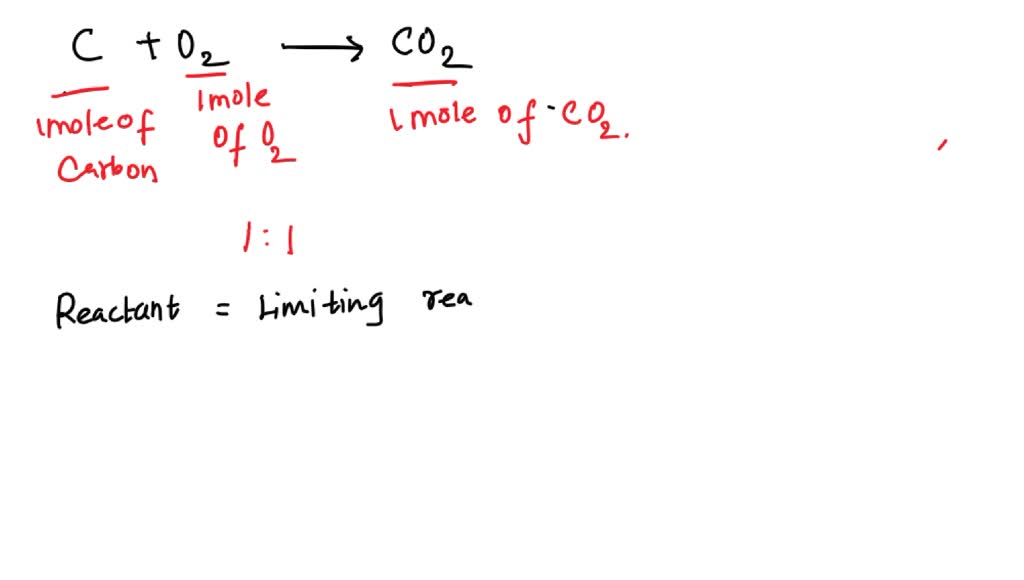 C + O₂ ⟶ CO₂
1mole of Carbon
1mole Of O₂
1 mole of CO₂.
1:1
Reactant = Limiting rea